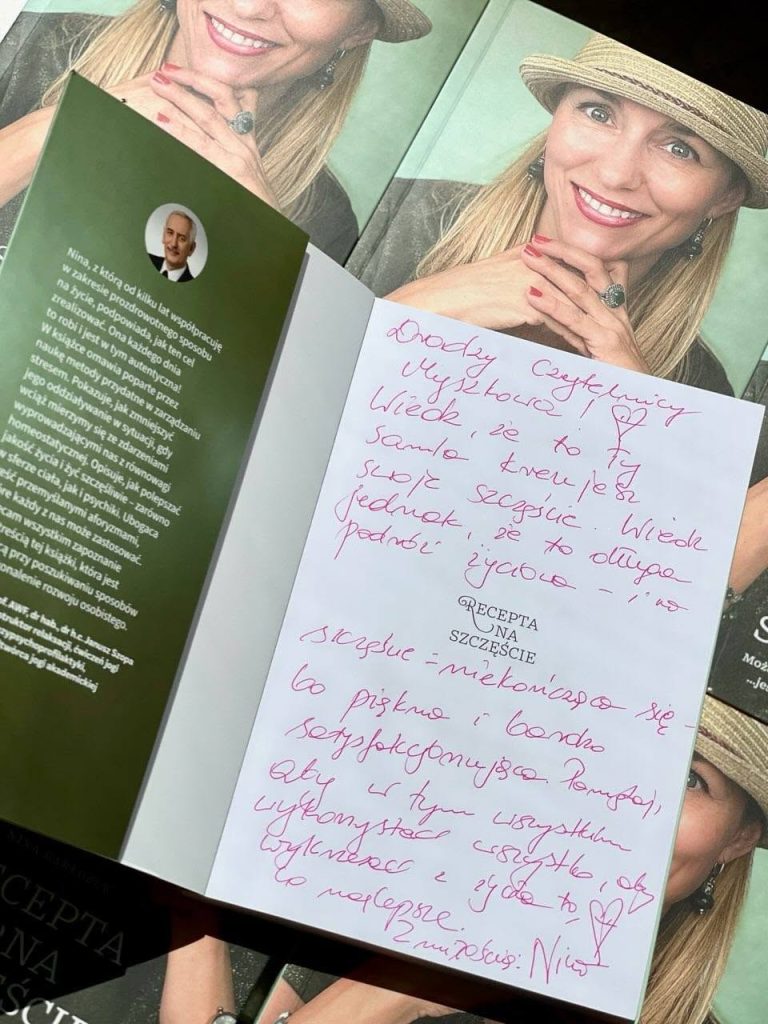 Nina, z którą od kilku lat współpracuję
w zakresie prozdrowotnego sposobu
na życie, podpowiada, jak ten cel
zrealizować. Ona każdego dnia
to robi i jest w tym autentyczna!
W książce omawia poparte przez
naukę metody przydatne w zarządzaniu
stresem. Pokazuje, jak zmniejszyć
jego oddziaływanie w sytuacji, gdy
wciąż mierzymy się ze zdarzeniami
wyprowadzającymi nas z równowagi
homeostatycznej. Opisuje, jak polepszać
jakość życia i żyć szczęśliwie – zarówno
w sferze ciała, jak i psychiki. Ubogaca
przemyślanymi aforyzmami,
każdy z nas może zastosować.
wszystkim zapoznanie
treścią tej książki, która jest
przy poszukiwaniu sposobów
rozwoju osobistego.
AWF, dr hab., dr h.c. Janusz Szopa
relaksacji, ćwiczeń jogi
twórca jogi akademickiej
Drodzy Czytelnicy
Myszkowa!
Wiedz, że to Ty
sam/a kreujesz
swoje szczęście. Wiedz
jednak, że to długa
podróż życiowa – i na
RECEPTA
NA
SZCZĘŚCIE
szczęście = niekończąca się –
bo piękna i bardzo
satysfakcjonująca. Pamiętaj,
aby w tym wszystkim
wykorzystać wszystko, aby
wykrzesać z życia to,
co najlepsze.
Z miłością: Nina
S
Moż
...je
RECEPTA
NA